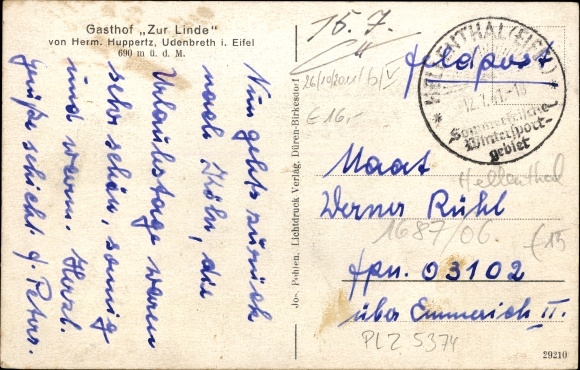 Gasthof „Zur Linde"
von Herm. Huppertz, Udenbreth i. Eifel
690 m ü. d. M.
Nun gehts zurück
nach Köln, die
Urlaubstage waren
sehr schön, sonnig
und warm. Herzl.
Grüße schickt. J. Peters.
Jos. Pohlen, Lichtdruck Verlag, Düren-Birkesdorf
15.7.
Feldpost
HELLENTHAL (EIFEL)
12.7.41.-18
Sommerfrische
Wintersport-
gebiet
€ 16,-
Maat
Hellenthal
Werner Rühl
1687/06.
€ 15
fpn. 03102
über Emmerich II.
PLZ 5374
29210